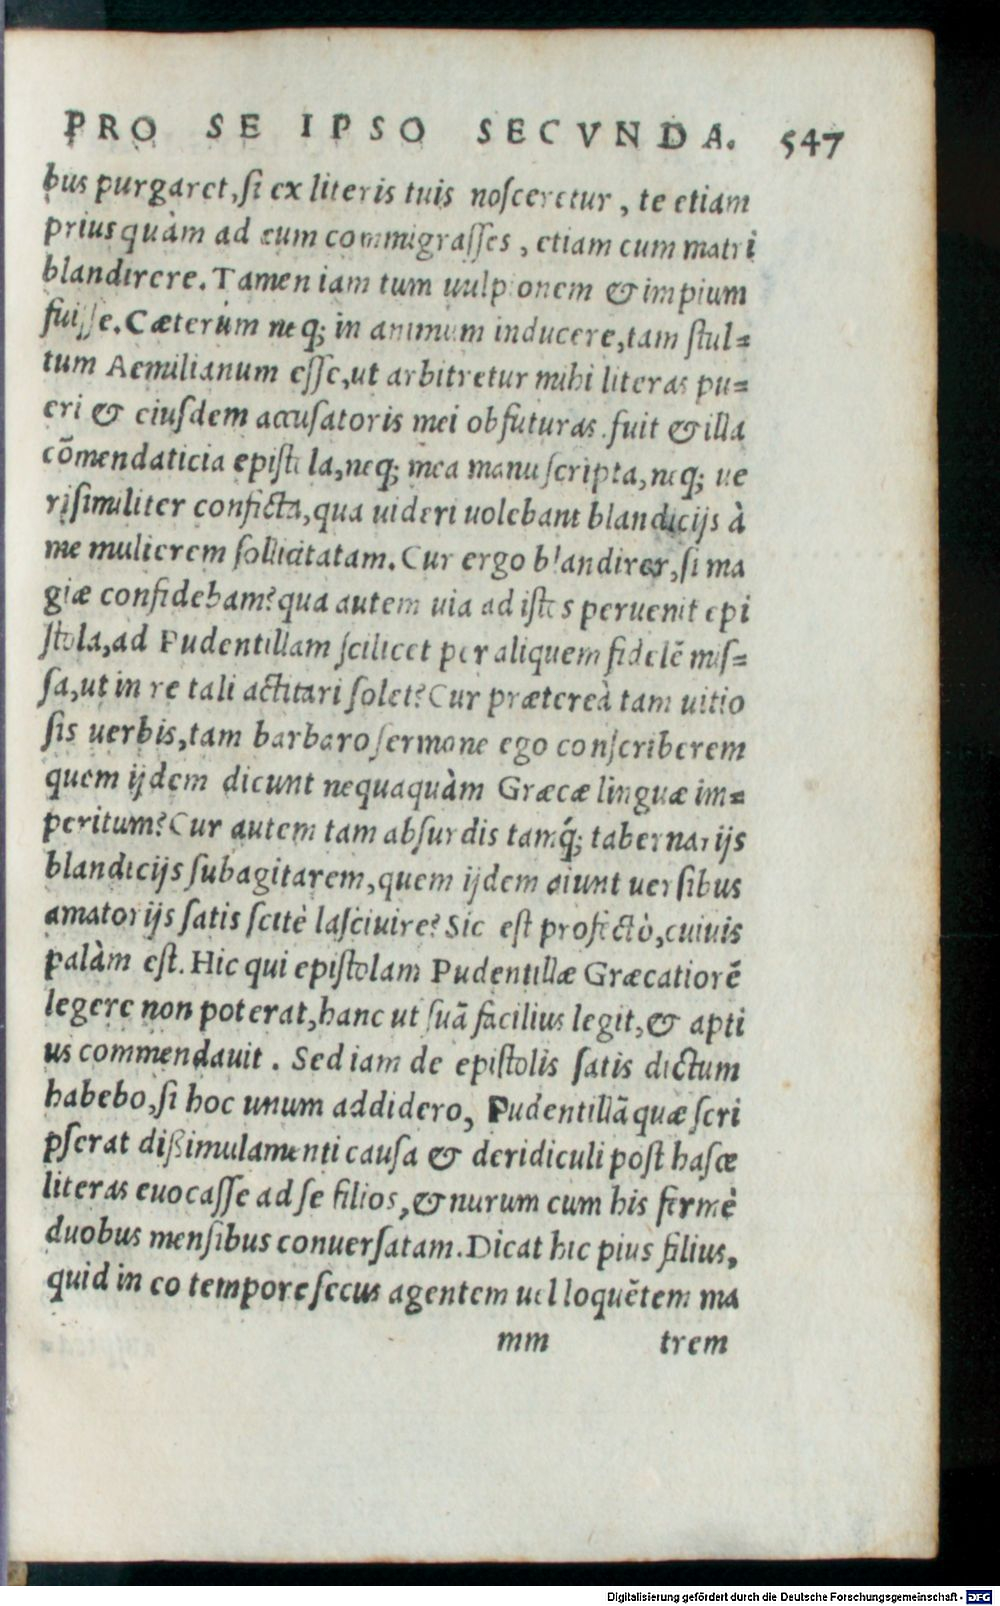 PRO SE IPSO SECVNDA. 547
bus purgaret, ſi ex literis tuis noſceretur, te etiam
prius quàm ad eum commigraſſes, etiam cum matri
blandirere. Tamen iam tum uulpionem & impium
fuiſſe. Cæterùm neq; in animum inducere, tam ſtul=
tum Aemilianum eſſe, ut arbitretur mihi literas pu=
eri & eiuſdem accuſatoris mei obfuturas. fuit & illa
cōmendaticia epiſtola, neq; mea manu ſcripta, neq; ue
riſimiliter conficta, qua uideri uolebant blandicijs à
me mulierem ſollicitatam. Cur ergo blandirer, ſi ma
giæ confidebam? qua autem uia ad iſtos peruenit epi
ſtola, ad Pudentillam ſcilicet per aliquem fidelē miſ=
ſa, ut in re tali actitari ſolet? Cur prætereà tam uitio
ſis uerbis, tam barbaro ſermone ego conſcriberem
quem ijdem dicunt nequaquàm Græcæ linguæ im=
peritum? Cur autem tam abſurdis tamq́; tabernarijs
blandicijs ſubagitarem, quem ijdem aiunt uerſibus
amatorijs ſatis ſcitè laſciuire? Sic eſt profectò, cuiuis
palàm eſt. Hic qui epiſtolam Pudentillæ Græcatiorē
legere non poterat, hanc ut ſuā facilius legit, & apti
us commendauit. Sed iam de epiſtolis ſatis dictum
habebo, ſi hoc unum addidero, Pudentillā quæ ſcri
pſerat dißimulamenti cauſa & deridiculi poſt haſce
literas euocaſſe ad ſe filios, & nurum cum his fermè
duobus menſibus conuerſatam. Dicat hic pius filius,
quid in eo tempore ſecus agentem uel loquētem ma
mm trem
Digitalisierung gefördert durch die Deutsche Forschungsgemeinschaft - DFG